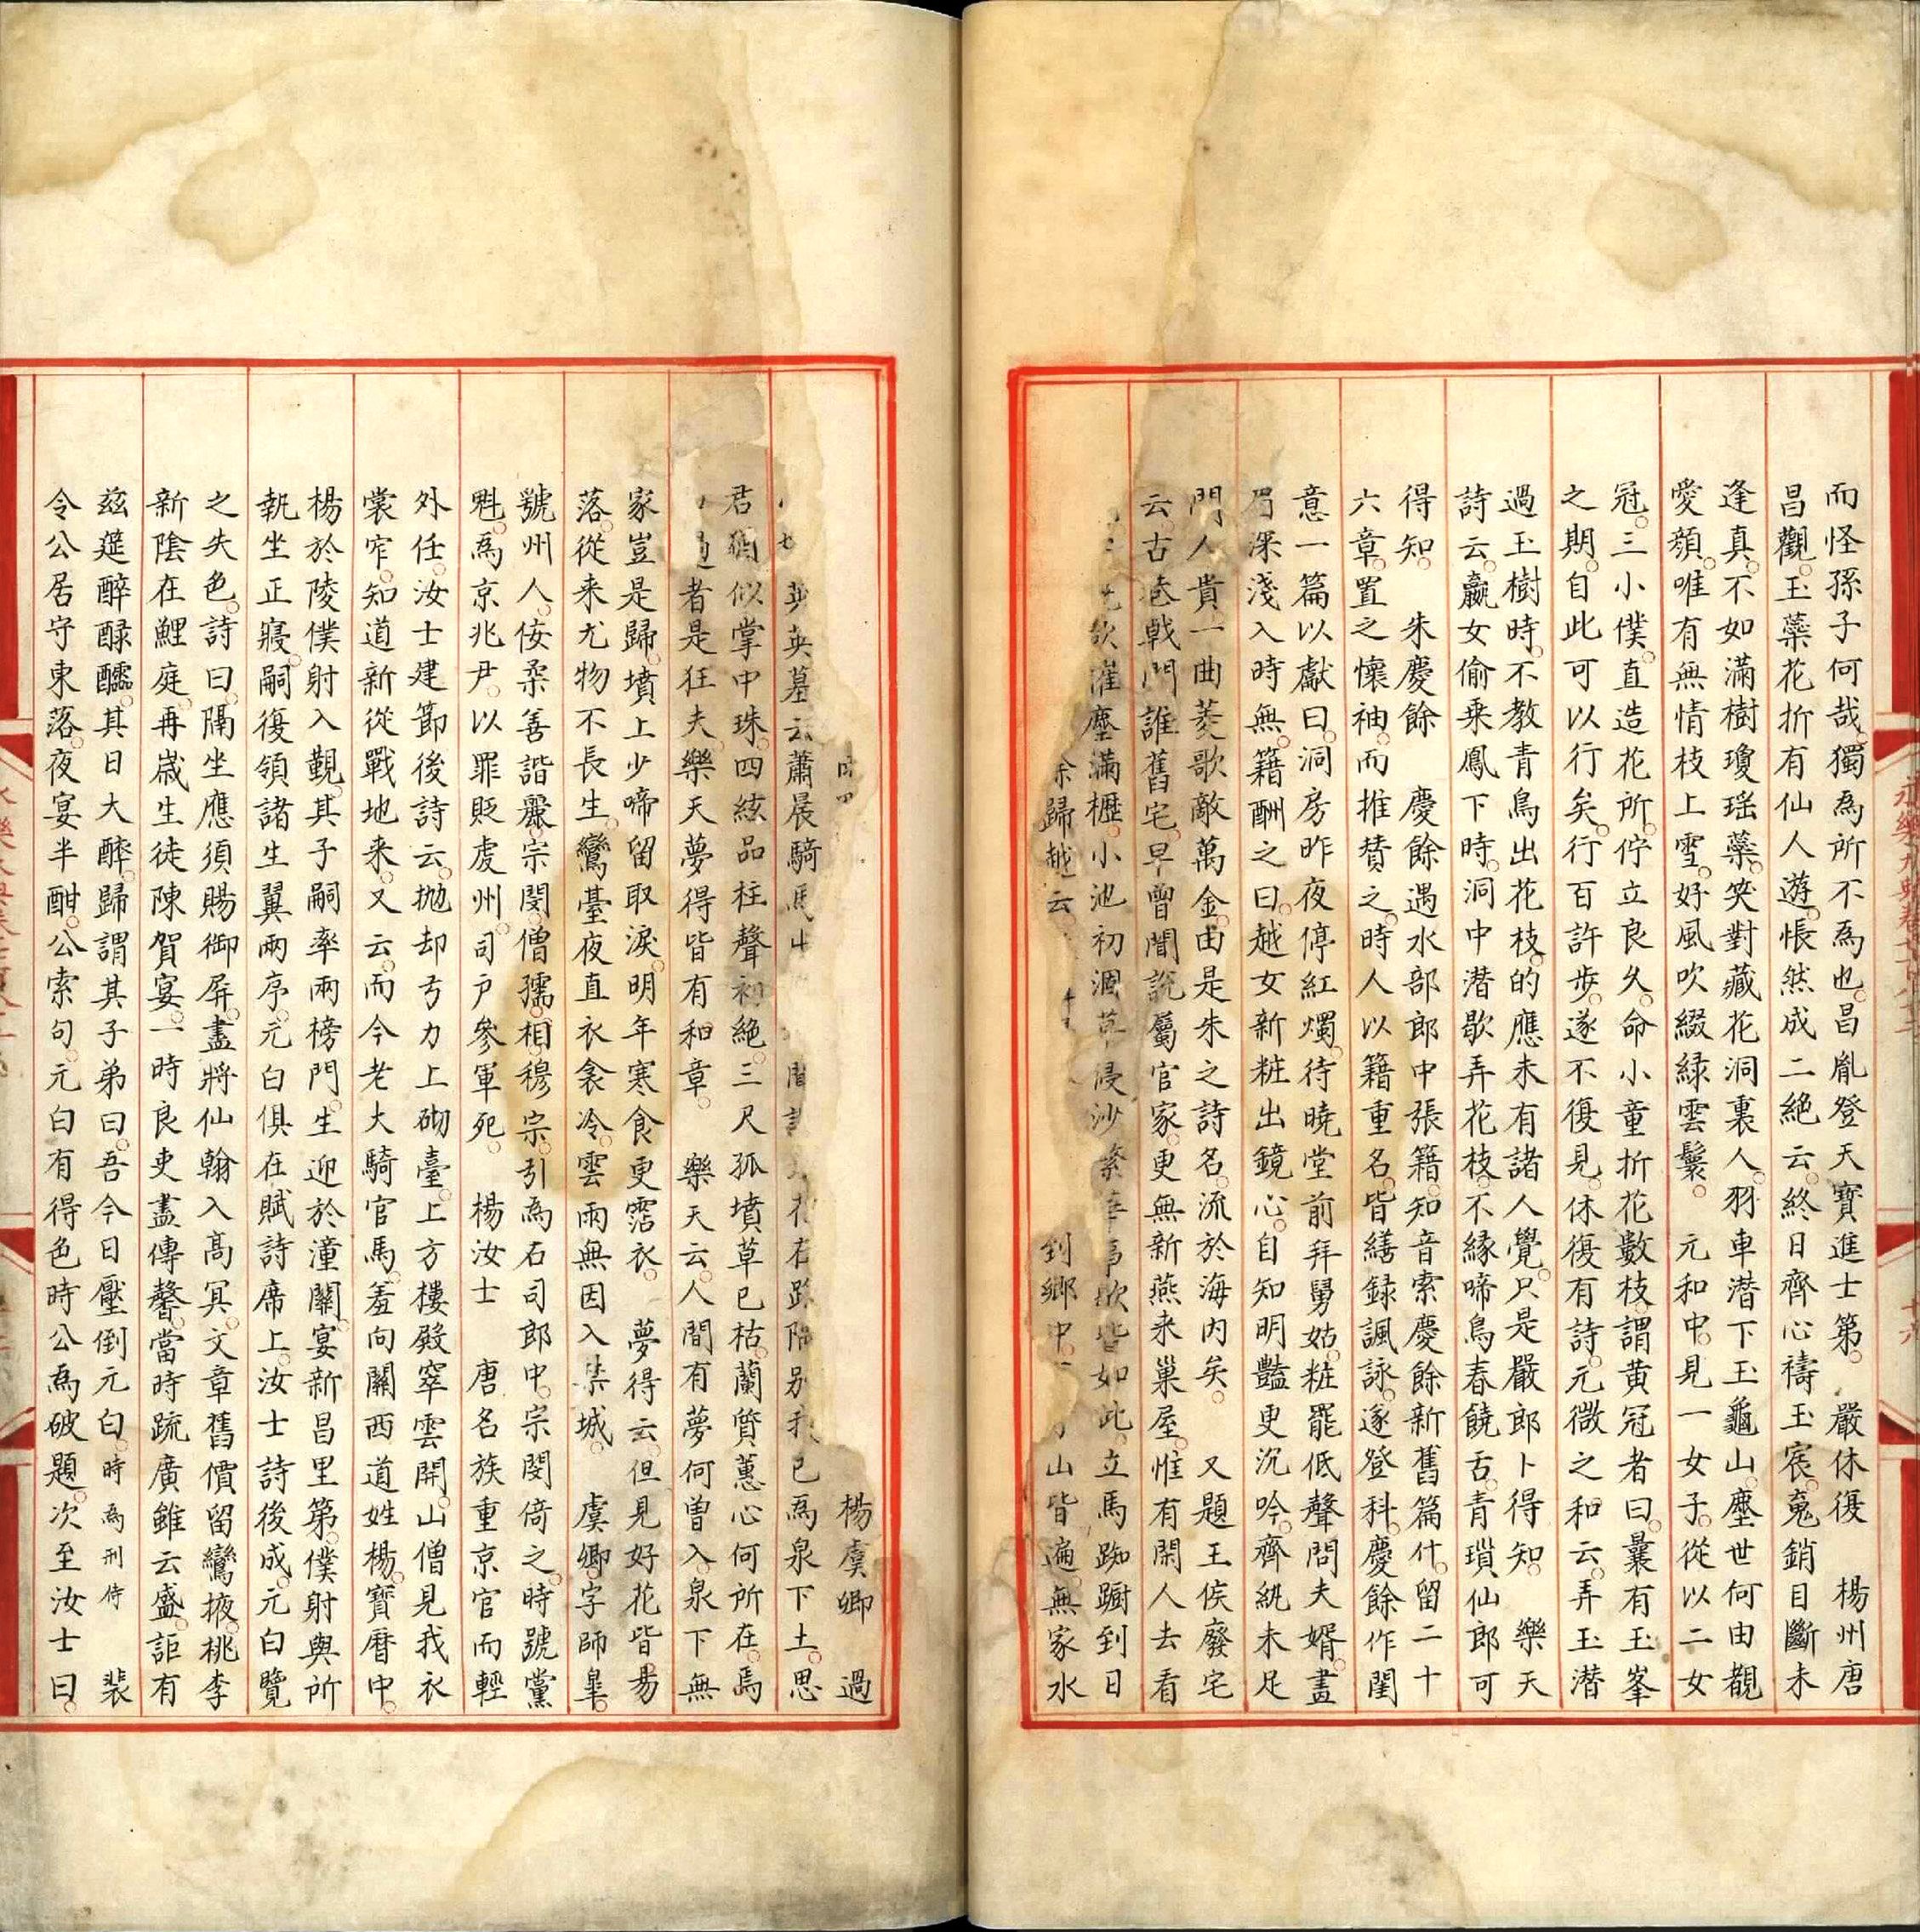 而怪孫子何哉獨為所不為也昌胤登天寶進士第 嚴休復 楊州唐
昌觀玉蘂花折有仙人遊悵然成二絶云終日齊心禱玉宸䰟銷目斷未
逢真不如滿樹瓊瑶蘂笑對藏花洞裏人羽車潜下玉龜山塵世何由覩
愛顔唯有無情枝上雪好風吹綴緑雲鬟 元和中見一女子從以二女
冠三小僕直造花所佇立良久命小童折花數枝謂黄冠者曰曩有玉峯
之期自此可以行矣行百許步遂不復見休復有詩元微之和云弄玉潜
過玉樹時不教青鳥出花枝的應未有諸人覺只是嚴郎卜得知 樂天
詩云嬴女偷乗鳳下時洞中潜歇弄花枝不縁啼鳥春饒舌青瑣仙郎可
得知 朱慶餘 慶餘遇水部郎中張籍知音索慶餘新舊篇什留二十
六章置之懷袖而推賛之時人以籍重名皆繕録諷詠遂登科慶餘作閨
意一篇以獻曰洞房昨夜停紅燭待曉堂前拜舅姑粧罷低聲問夫婿畫
眉深淺入時無籍酬之曰越女新粧出鏡心自知明豔更沉吟齊紈未足
門人貴一曲菱歌敵萬金由是朱之詩名流於海内矣 又題王侯廢宅
云古巷戟門誰舊宅早曾聞說屬官家更無新燕来巢屋惟有閑人去看
欹摧塵滿櫪小池初涸草侵沙繁華事歇皆如此立馬踟蹰到日
歸越云 到鄉中 山皆遍無家水
楊虞卿 過
英英墓云蕭晨騎馬出 閒 花右路陌别我已為泉下土思
君猶似掌中珠四絃品柱聲初絶三尺孤墳草已枯蘭質蕙心何所在焉
過者是狂夫樂天夢得皆有和章 樂天云人間有夢何曾入泉下無
家豈是歸墳上少啼留取淚明年寒食更霑衣 夢得云但見好花皆易
落從来尤物不長生鸞臺夜直衣衾冷雲雨無因入禁城 虞卿字師臯
虢州人佞柔善諧麗宗閔僧孺相穆宗引為右司郎中宗閔倚之時號黨
魁為京兆尹以罪貶虔州司户參軍死 楊汝士 唐名族重京官而輕
外任汝士建節後詩云抛却弓刀上砌臺上方樓殿窣雲開山僧見我衣
裳窄知道新從戰地来又云而今老大騎官馬羞向關西道姓楊寶曆中
楊於陵僕射入覲其子嗣率兩榜門生迎於潼關宴新昌里第僕射與所
執坐正寢嗣復領諸生翼兩序元白俱在賦詩席上汝士詩後成元白覽
之失色詩曰隔坐應須賜御屏盡將仙翰入高冥文章舊價留鸞掖桃李
新陰在鯉庭再嵗生徒陳賀宴一時良吏盡傳馨當時疏廣雖云盛詎有
兹筵醉醁醽其日大醉歸謂其子弟曰吾今日壓倒元白時為刑侍 裴
令公居守東落夜宴半酣公索句元白有得色時公為破題次至汝士曰